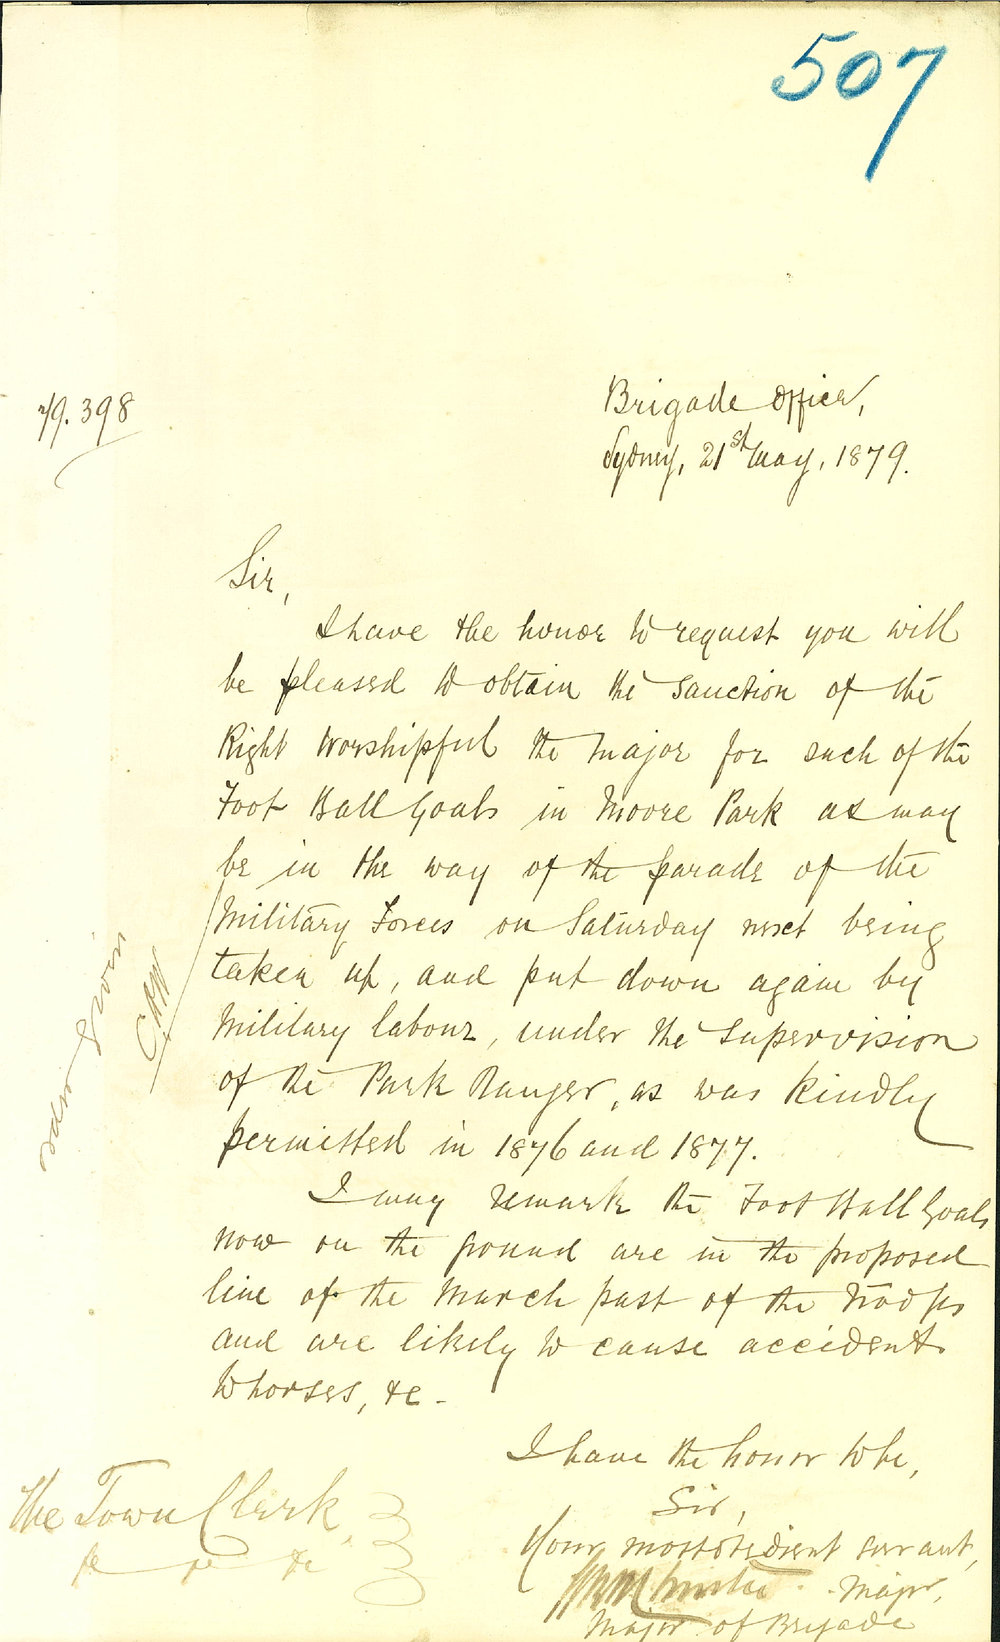 507
79.398
Brigade Office,
Sydney, 21st May, 1879.
Sir,
I have the honor to request you will
be pleased to obtain the sanction of the
Right Worshipful the Mayor for such of the
Foot Ball Goals in Moore Park as may
be in the way of the parade of the
Military Forces on Saturday next being
taken up, and put down again by
Military labour, under the supervision
of the Park Ranger, as was kindly
permitted in 1876 and 1877.
I may remark the Foot Ball Goals
now on the ground are in the proposed
line of the march past of the Troops
and are likely to cause accidents
to horses, &c -
I have the honor to be,
Sir,
Your most obedient servant,
Major,
Major of Brigade
The Town Clerk,
&c &c &c
order given